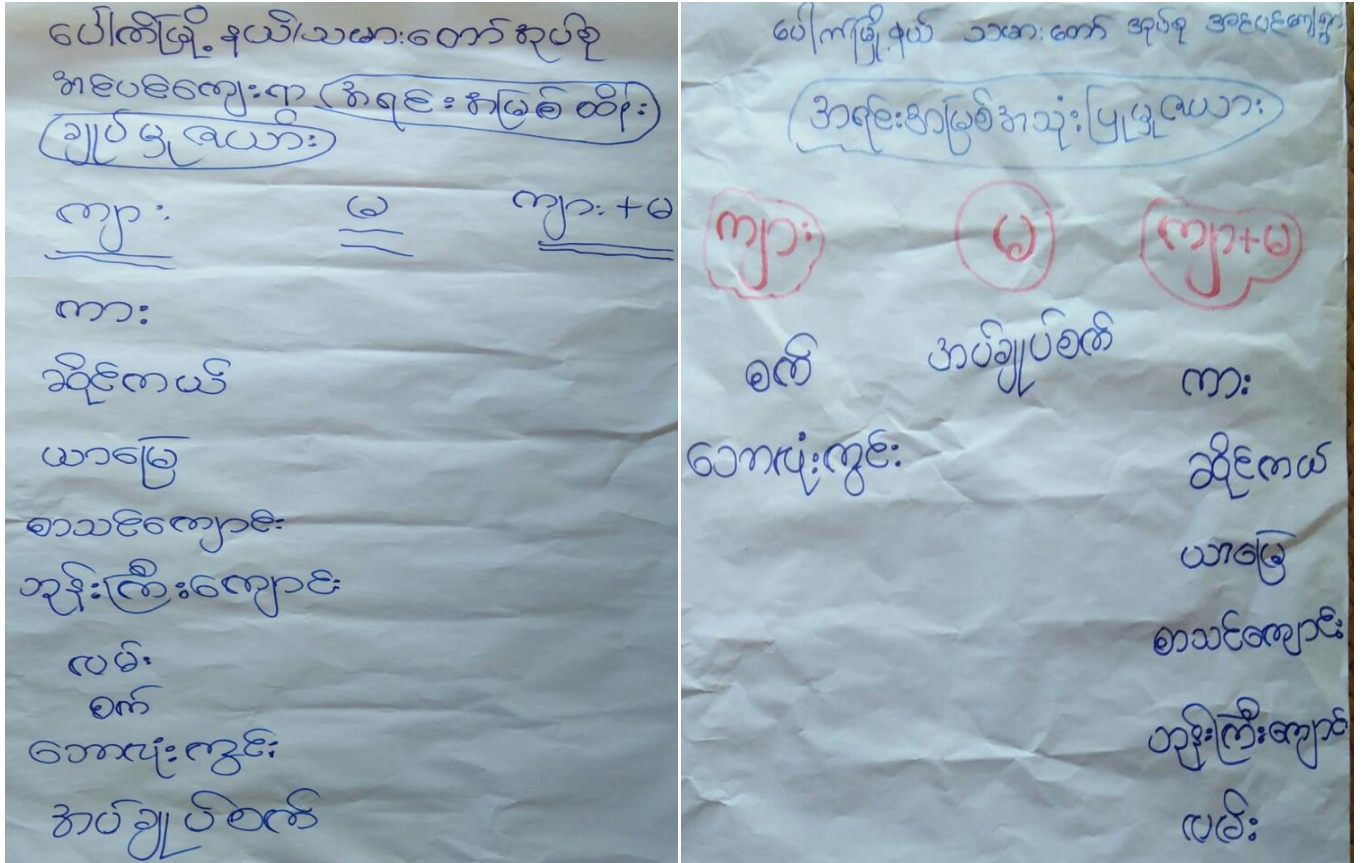 ပေါက်မြို့နယ်/သမားတော်အုပ်စု
အင်ပင်ကျေးရွာ (အရင်းအမြစ်ထိန်း
ချုပ်မှုဇယား)
ကျား မ ကျား+မ
ကား
ဆိုင်ကယ်
ယာမြေ
စာသင်ကျောင်း
ဘုန်းကြီးကျောင်း
လမ်း
စက်
ဘောလုံးကွင်း
အပ်ချုပ်စက်
ပေါက်မြို့နယ် သမားတော် အုပ်စု အင်ပင်ကျေးရွာ
အရင်းအမြစ်အသုံးပြုမှုဇယား
ကျား မ ကျာ+မ
စက် အပ်ချုပ်စက် ကား
ဘောလုံးကွင်း ဆိုင်ကယ်
ယာမြေ
စာသင်ကျောင်း
ဘုန်းကြီးကျောင်း
လမ်း